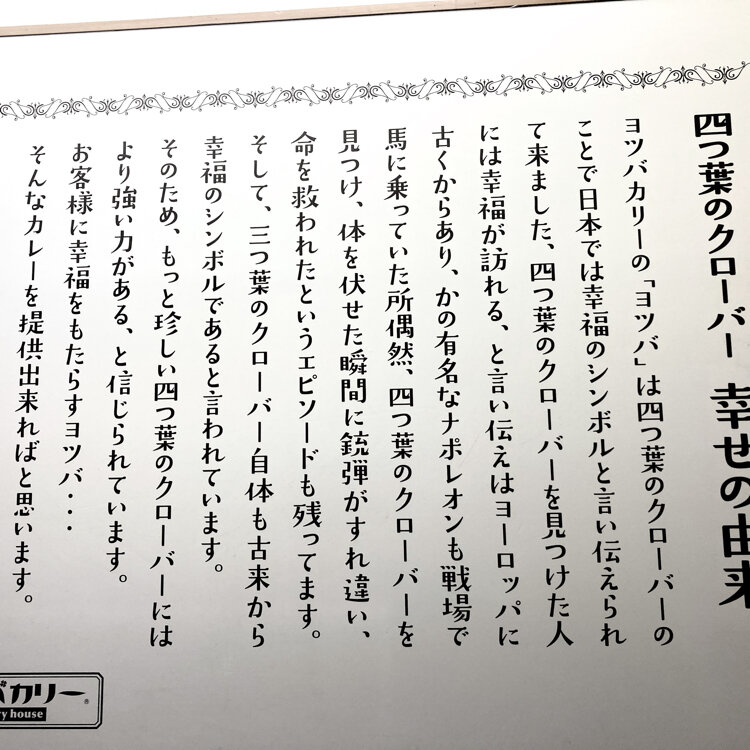 四つ葉のクローバー 幸せの由来
ヨツバカリーの「ヨツバ」は四つ葉のクローバーの
ことで日本では幸福のシンボルと言い伝えられ
て来ました、四つ葉のクローバーを見つけた人
には幸福が訪れる、と言い伝えはヨーロッパに
古くからあり、かの有名なナポレオンも戦場で
馬に乗っていた所偶然、四つ葉のクローバーを
見つけ、体を伏せた瞬間に銃弾がすれ違い、
命を救われたというエピソードも残ってます。
そして、三つ葉のクローバー自体も古来から
幸福のシンボルであると言われています。
そのため、もっと珍しい四つ葉のクローバーには
より強い力がある、と信じられています。
お客様に幸福をもたらすヨツバ・・・
そんなカレーを提供出来ればと思います。
バカリー®
ry house